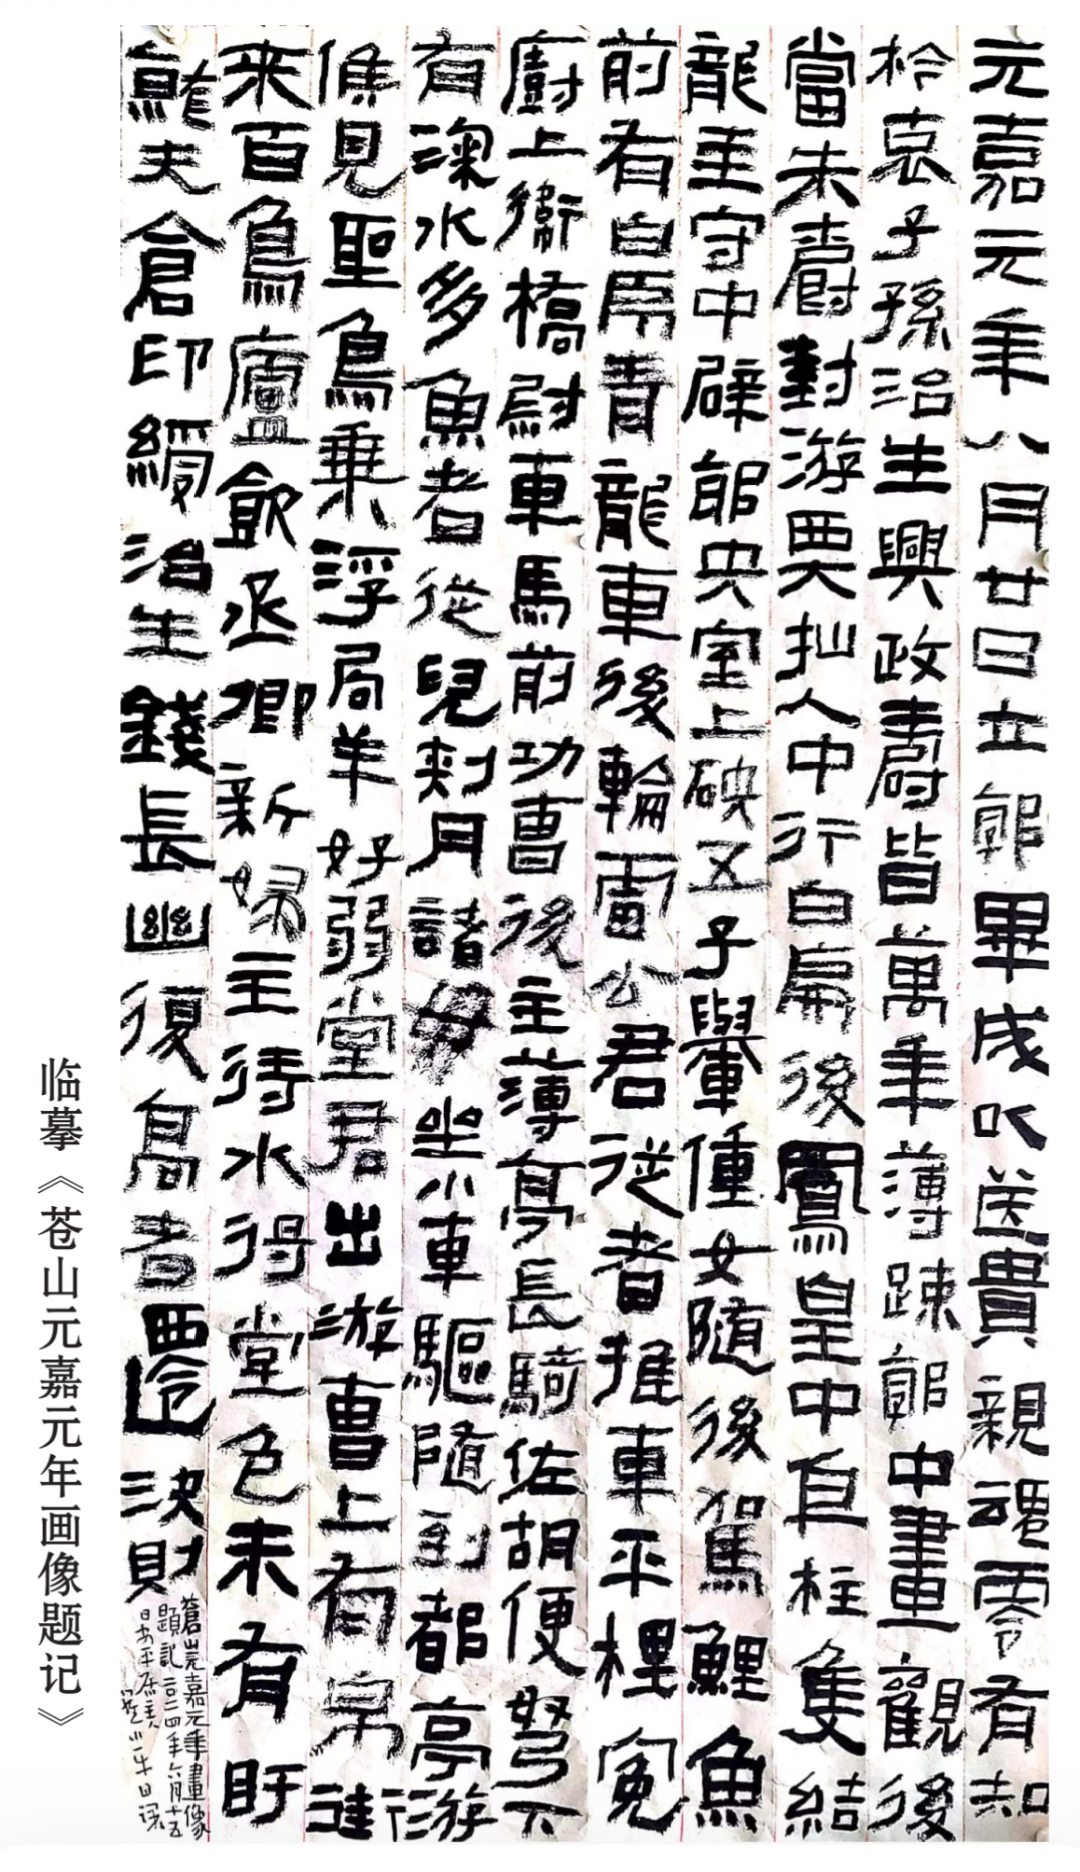 元嘉元年八月廿日立郭畢成以送貴親魂零有知
柃哀子孫治生興政壽皆萬年薄踈郭中畫觀後
當朱爵對游㹳人中行白虎後鳳皇中直柱隻結
龍主守中辟邪央室上砄五子轝僮女随後駕鯉魚
前有白虎青龍車後輪雷公君從者推車平桯冤
廚上衛橋尉車馬前功曹後主薄亭長騎佐胡便弩下
有深水多魚者從兒刾月諸母坐小車驅随到都亭游
侯見聖鳥乗浮局羊好弱堂君出游曹上有行
来百鳥廬飲丞卿新婦主待水将堂色未有盱
龍夫倉印綬治生錢長幽復鳥者還決則
蒼山元嘉元年畫像
題記二〇二四年六月十五
临摹《苍山元嘉元年画像题记》